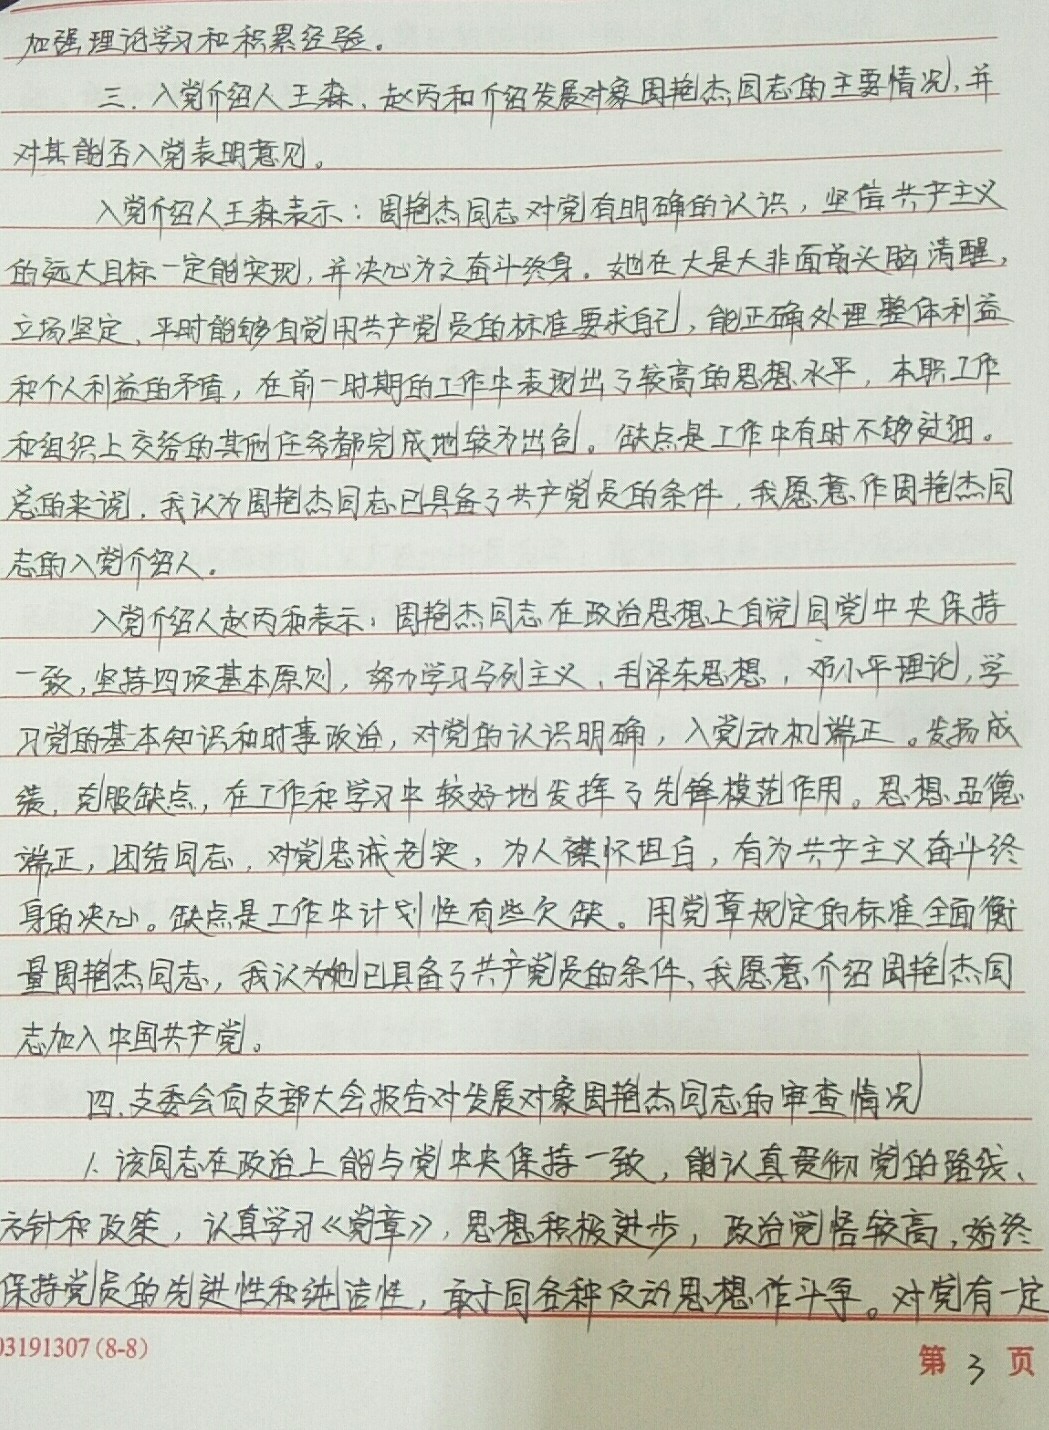 加强理论学习和积累经验。
三、入党介绍人王森、赵丙和介绍发展对象周艳杰同志的主要情况，并
对其能否入党表明意见。
入党介绍人王森表示：周艳杰同志对党有明确的认识，坚信共产主义
的远大目标一定能实现，并决心为之奋斗终身。她在大是大非面前头脑清醒，
立场坚定、平时能够自觉用共产党员的标准要求自己，能正确处理整体利益
和个人利益的矛盾，在前一时期的工作中表现出了较高的思想水平，本职工作
和组织上交给的其他任务都完成地较为出色。缺点是工作中有时不够过细。
总的来说，我认为周艳杰同志已具备了共产党员的条件，我愿意作周艳杰同
志的入党介绍人。
入党介绍人赵丙和表示：周艳杰同志在政治思想上自觉同党中央保持
一致，坚持四项基本原则，努力学习马列主义、毛泽东思想，邓小平理论，学
习党的基本知识和时事政治，对党的认识明确，入党动机端正。发扬成
绩，克服缺点，在工作和学习中较好地发挥了先锋模范作用。思想品德
端正，团结同志，对党忠诚老实，为人襟怀坦白，有为共产主义奋斗终
身的决心。缺点是工作中计划性有些欠缺。用党章规定的标准全面衡
量周艳杰同志，我认为她已具备了共产党员的条件、我愿意介绍周艳杰同
志加入中国共产党。
四、支委会向支部大会报告对发展对象周艳杰同志的审查情况
1. 该同志在政治上能与党中央保持一致，能认真贯彻党的路线、
方针和政策，认真学习《党章》，思想积极进步，政治觉悟较高，始终
保持党员的先进性和纯洁性，敢于同各种反动思想作斗争。对党有一定
03191307(8-8)
第3页